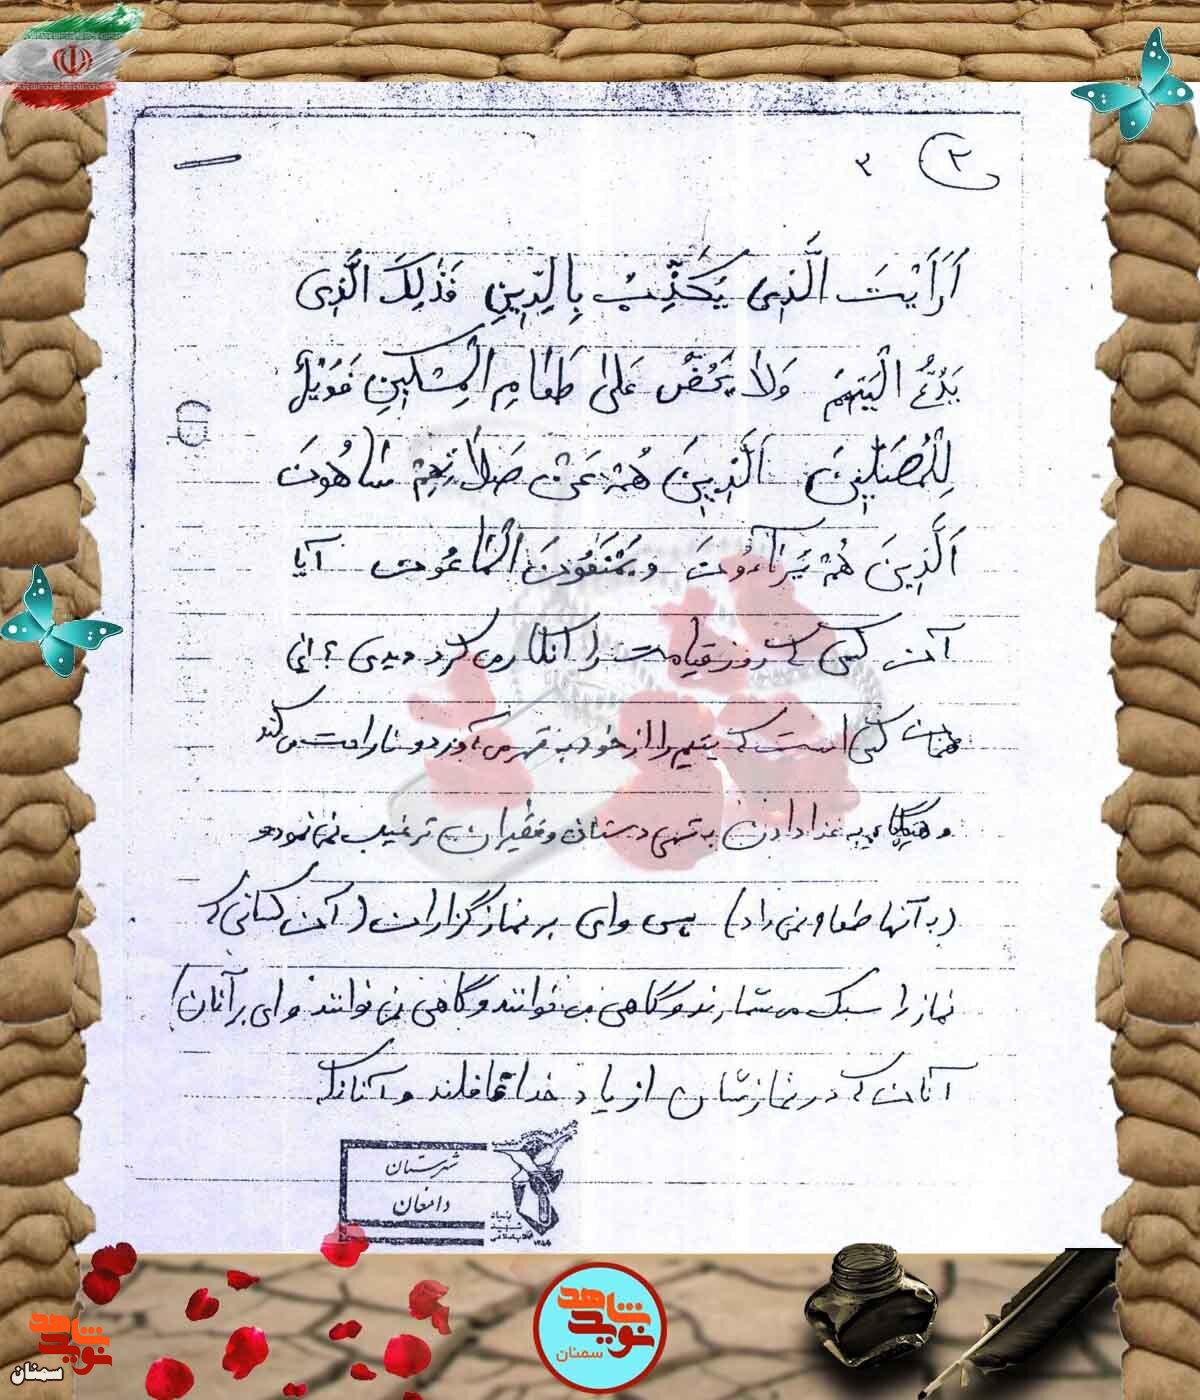 ۲ ۳
اَرَاَیْتَ الَّذِی یُکَذِّبُ بِالدِّینِ فَذٰلِکَ الَّذِی
یَدُعُّ الْیَتِیمَ وَلاٰ یَحُضُّ عَلیٰ طَعٰامِ الْمِسْکِینِ فَوَیْلٌ
لِلْمُصَلِّینَ اَلَّذِینَ هُمْ عَنْ صَلاٰتِهِمْ سٰاهُونَ
اَلَّذِینَ هُمْ یُرٰآءُونَ و یَمْنَعُونَ الْمٰاعُونَ آیا
آن کس که روز قیامت را انکار می کرد دیدی؟ این
همان کسی است که یتیم را از خود به قهر می آورد و ناراحت می کند
و هیچگاه به غذا دادن به تهی دستان و فقیران ترغیب نمی نمود و
(به آنها طعام نمی داد) پس وای بر نمازگزاران (آن کسانی که
نماز را سبک می شمارند و گاهی می خوانند و گاهی نمی خوانند وای بر آنان)
آنان که در نمازشان از یاد خدا غافلند و آنانکه
شهرستان
دامغان
بنیاد
شهید
انقلاب اسلامی
نوید شاهد
سمنان
نوید شاهد
سمنان